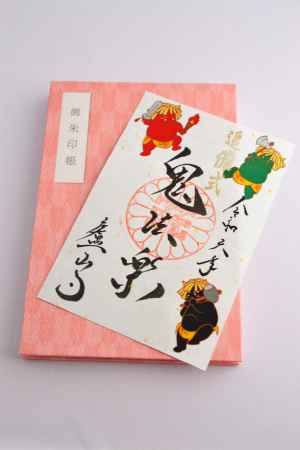 御朱印帳
追儺式
令和五年
鬼法楽
廬山寺